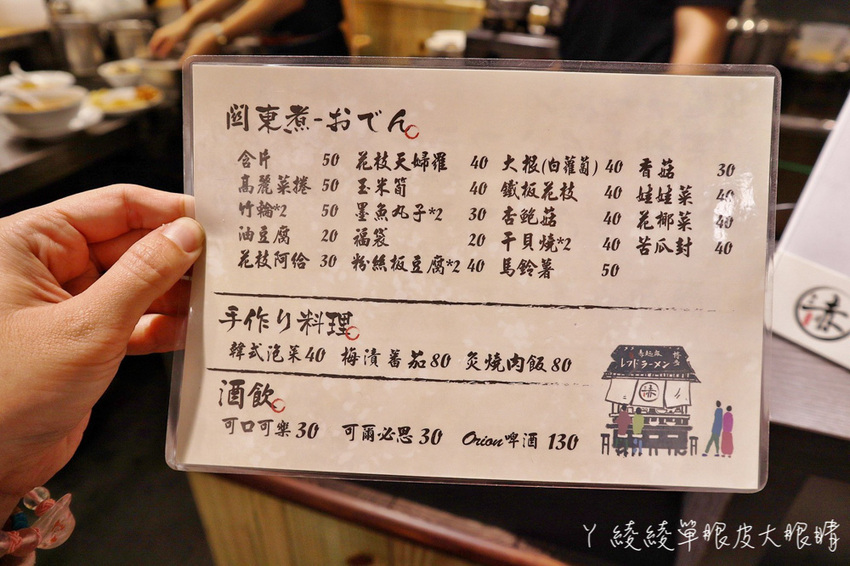 關東煮-おでん
含片 50 花枝天婦羅 40 大根(白蘿蔔) 40 香菇 30
高麗菜捲 50 玉米筍 40 鐵板花枝 40 娃娃菜 40
竹輪*2 50 墨魚丸子*2 30 杏鮑菇 40 花椰菜 40
油豆腐 20 福袋 20 干貝燒*2 40 苦瓜封 40
花枝阿給 30 粉絲板豆腐*2 40 馬鈴薯 50
手作り料理
韓式泡菜 40 梅漬蕃茄 80 炙燒肉飯 80
レッドラーメン
酒飲
可口可樂 30 可爾必思 30 Orion啤酒 130
ㄚ綾綾單眼皮大眼睛